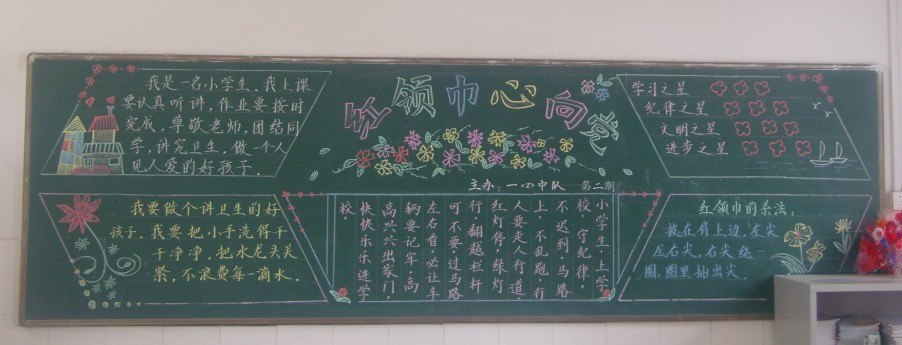 我是一名小学生，我上课
要认真听讲，作业要按时
完成，尊敬老师，团结同
学，讲究卫生，做一个人
见人爱的好孩子。
红领巾心向党
主办：一〈2〉中队 第二期
学习之星
纪律之星
文明之星
进步之星
我要做个讲卫生的好
孩子。我要把小手洗得干
干净净，把水龙头关
紧，不浪费每一滴水。
小学生，上学
校，守纪律，
不迟到，马路
上，不乱跑，行
人要走人行道
红灯停，绿灯
行，翻越栏杆
可不要，过马路
左右看，必让车
辆要记牢，高
高兴兴出家门，
快快乐乐进学
校
红领巾的系法：
披在肩上边，左尖
压右尖，右尖绕一
圈，圈里抽出尖。